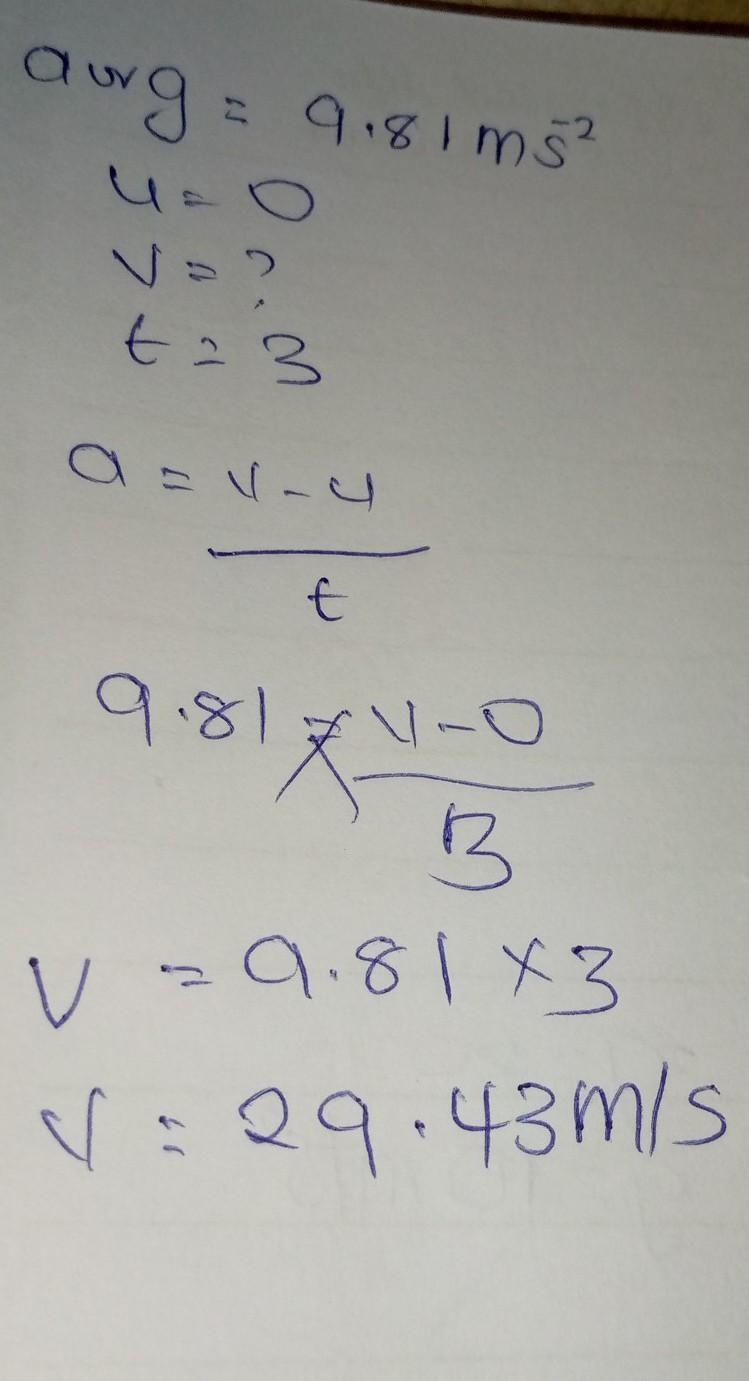 a or g = 9.81 ms⁻²
u = 0
v = ?
t = 3
a = v - u
t
9.81 = v - 0
3
v = 9.81 × 3
v = 29.43 m/s